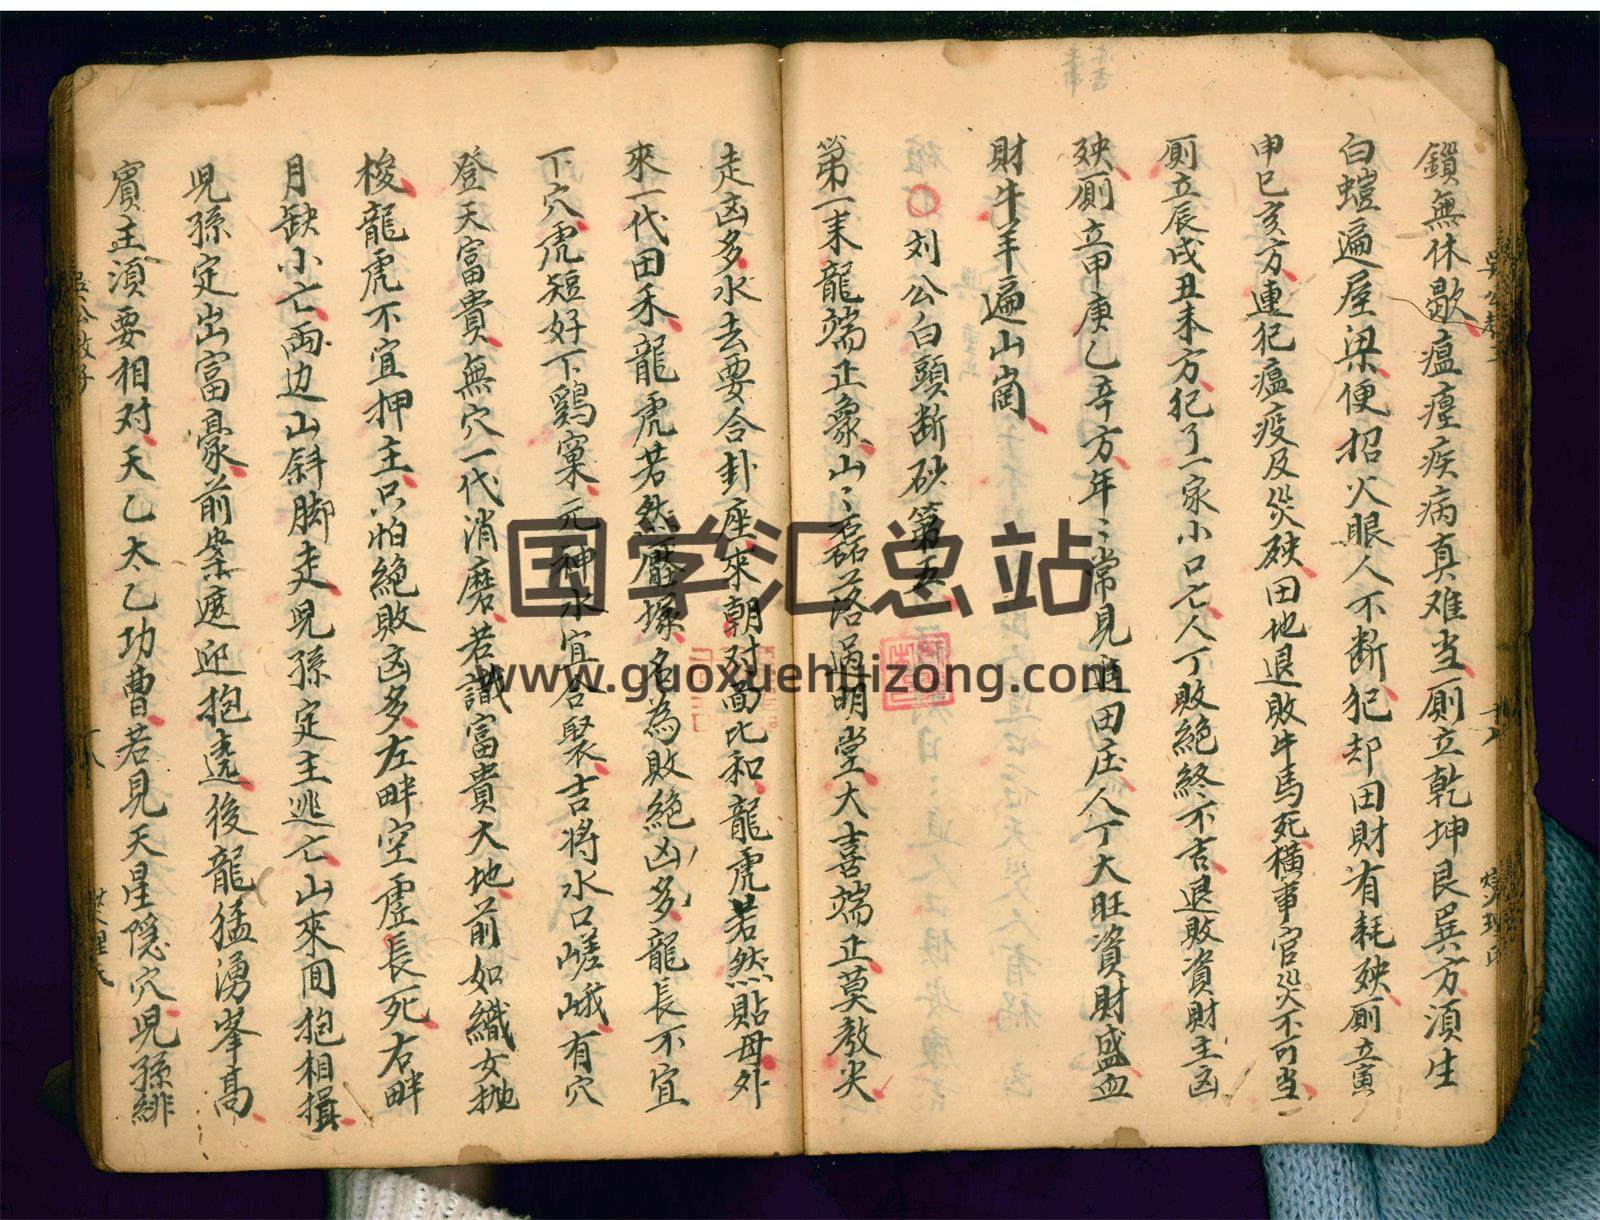 鎖無休歇瘟瘴疾病真难当厠立乾坤艮巽方須生
白螘遍屋梁便招火眼人不断犯却田財有耗殃厠立寅
申巳亥方連犯瘟疫及災殃田地退敗牛馬死横事官災不可当
厠立辰戌丑未方犯了一家小口亡人丁敗絶終不吉退敗資財主凶
殃厠立甲庚乙辛方年〻常見進田庄人丁大旺資財盛血
財牛羊遍山崗
〇刘公白頭断砂第五
第一来龍端正象山〻磊落過明堂大喜端正莫教尖
走凶多水去要合卦座來朝对面比和龍虎若然貼母外
來一代田禾龍虎若然壓塚名為敗絶凶多龍長不宜
下穴虎短好下鷄窠元神水宜合聚吉将水口嵯峨有穴
登天富貴無穴一代消磨若識富貴大地前如織女抛
梭龍虎不宜押主只怕絶敗凶多左畔空虚長死右畔
月缺小亡両边山斜脚走児孫定主逃亡山來囬抱相揖
児孫定出富豪前案遮迎抱遶後龍猛湧峯高
賓主須要相对天乙太乙功曹若見天星隠穴児孫緋
十八
国学汇总站
www.guoxuehuizong.com